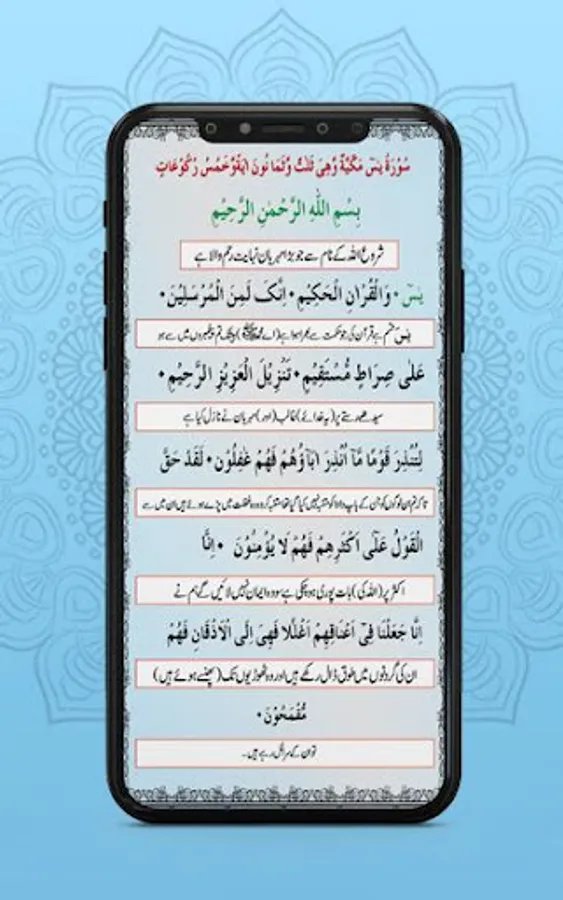 سُوْرَةُ يٰسٓ مَكِّيَّةٌ وَّهِىَ ثَلٰثٌ وَّثَمَا نُونَ اٰيَةً وَّخَمْسُ رُكُوْعَاتٍ
بِسْمِ اللّٰهِ الرَّحْمٰنِ الرَّحِيْمِ
شروع اللہ کے نام سے جو بڑا مہربان نہایت رحم والا ہے
يٰسٓ • وَالْقُرْاٰنِ الْحَكِيْمِ • اِنَّكَ لَمِنَ الْمُرْسَلِيْنَ •
یٰسٓ قسم ہے قرآن کی جو حکمت سے بھرا ہوا ہے (اے محمد ﷺ) بیشک تم پیغمبروں میں سے ہو
عَلٰى صِرَاطٍ مُّسْتَقِيْمٍ • تَنْزِيْلَ الْعَزِيْزِ الرَّحِيْمِ •
سیدھے رستے پر (یہ خدائے) غالب (اور) مہربان نے نازل کیا ہے
لِتُنْذِرَ قَوْمًا مَّآ اُنْذِرَ اٰبَآؤُهُمْ فَهُمْ غٰفِلُوْنَ • لَقَدْ حَقَّ
تاکہ تم ان لوگوں کو جن کے باپ دادا کو متنبہ نہیں کیا گیا تھا متنبہ کردو وہ غفلت میں پڑے ہوئے ہیں ان میں سے
الْقَوْلُ عَلٰٓى اَكْثَرِهِمْ فَهُمْ لَا يُؤْمِنُوْنَ • اِنَّا
اکثر پر (اللہ کی) بات پوری ہو چکی ہے سو وہ ایمان نہیں لائیں گے ہم نے
اِنَّا جَعَلْنَا فِىْٓ اَعْنَاقِهِمْ اَغْلٰلًا فَهِىَ اِلَى الْاَذْقَانِ فَهُمْ
ان کی گردنوں میں طوق ڈال رکھے ہیں اور وہ ٹھوڑیوں تک (پھنسے ہوئے ہیں)
مُّقْمَحُوْنَ •
تو ان کے سر اٹل رہے ہیں۔